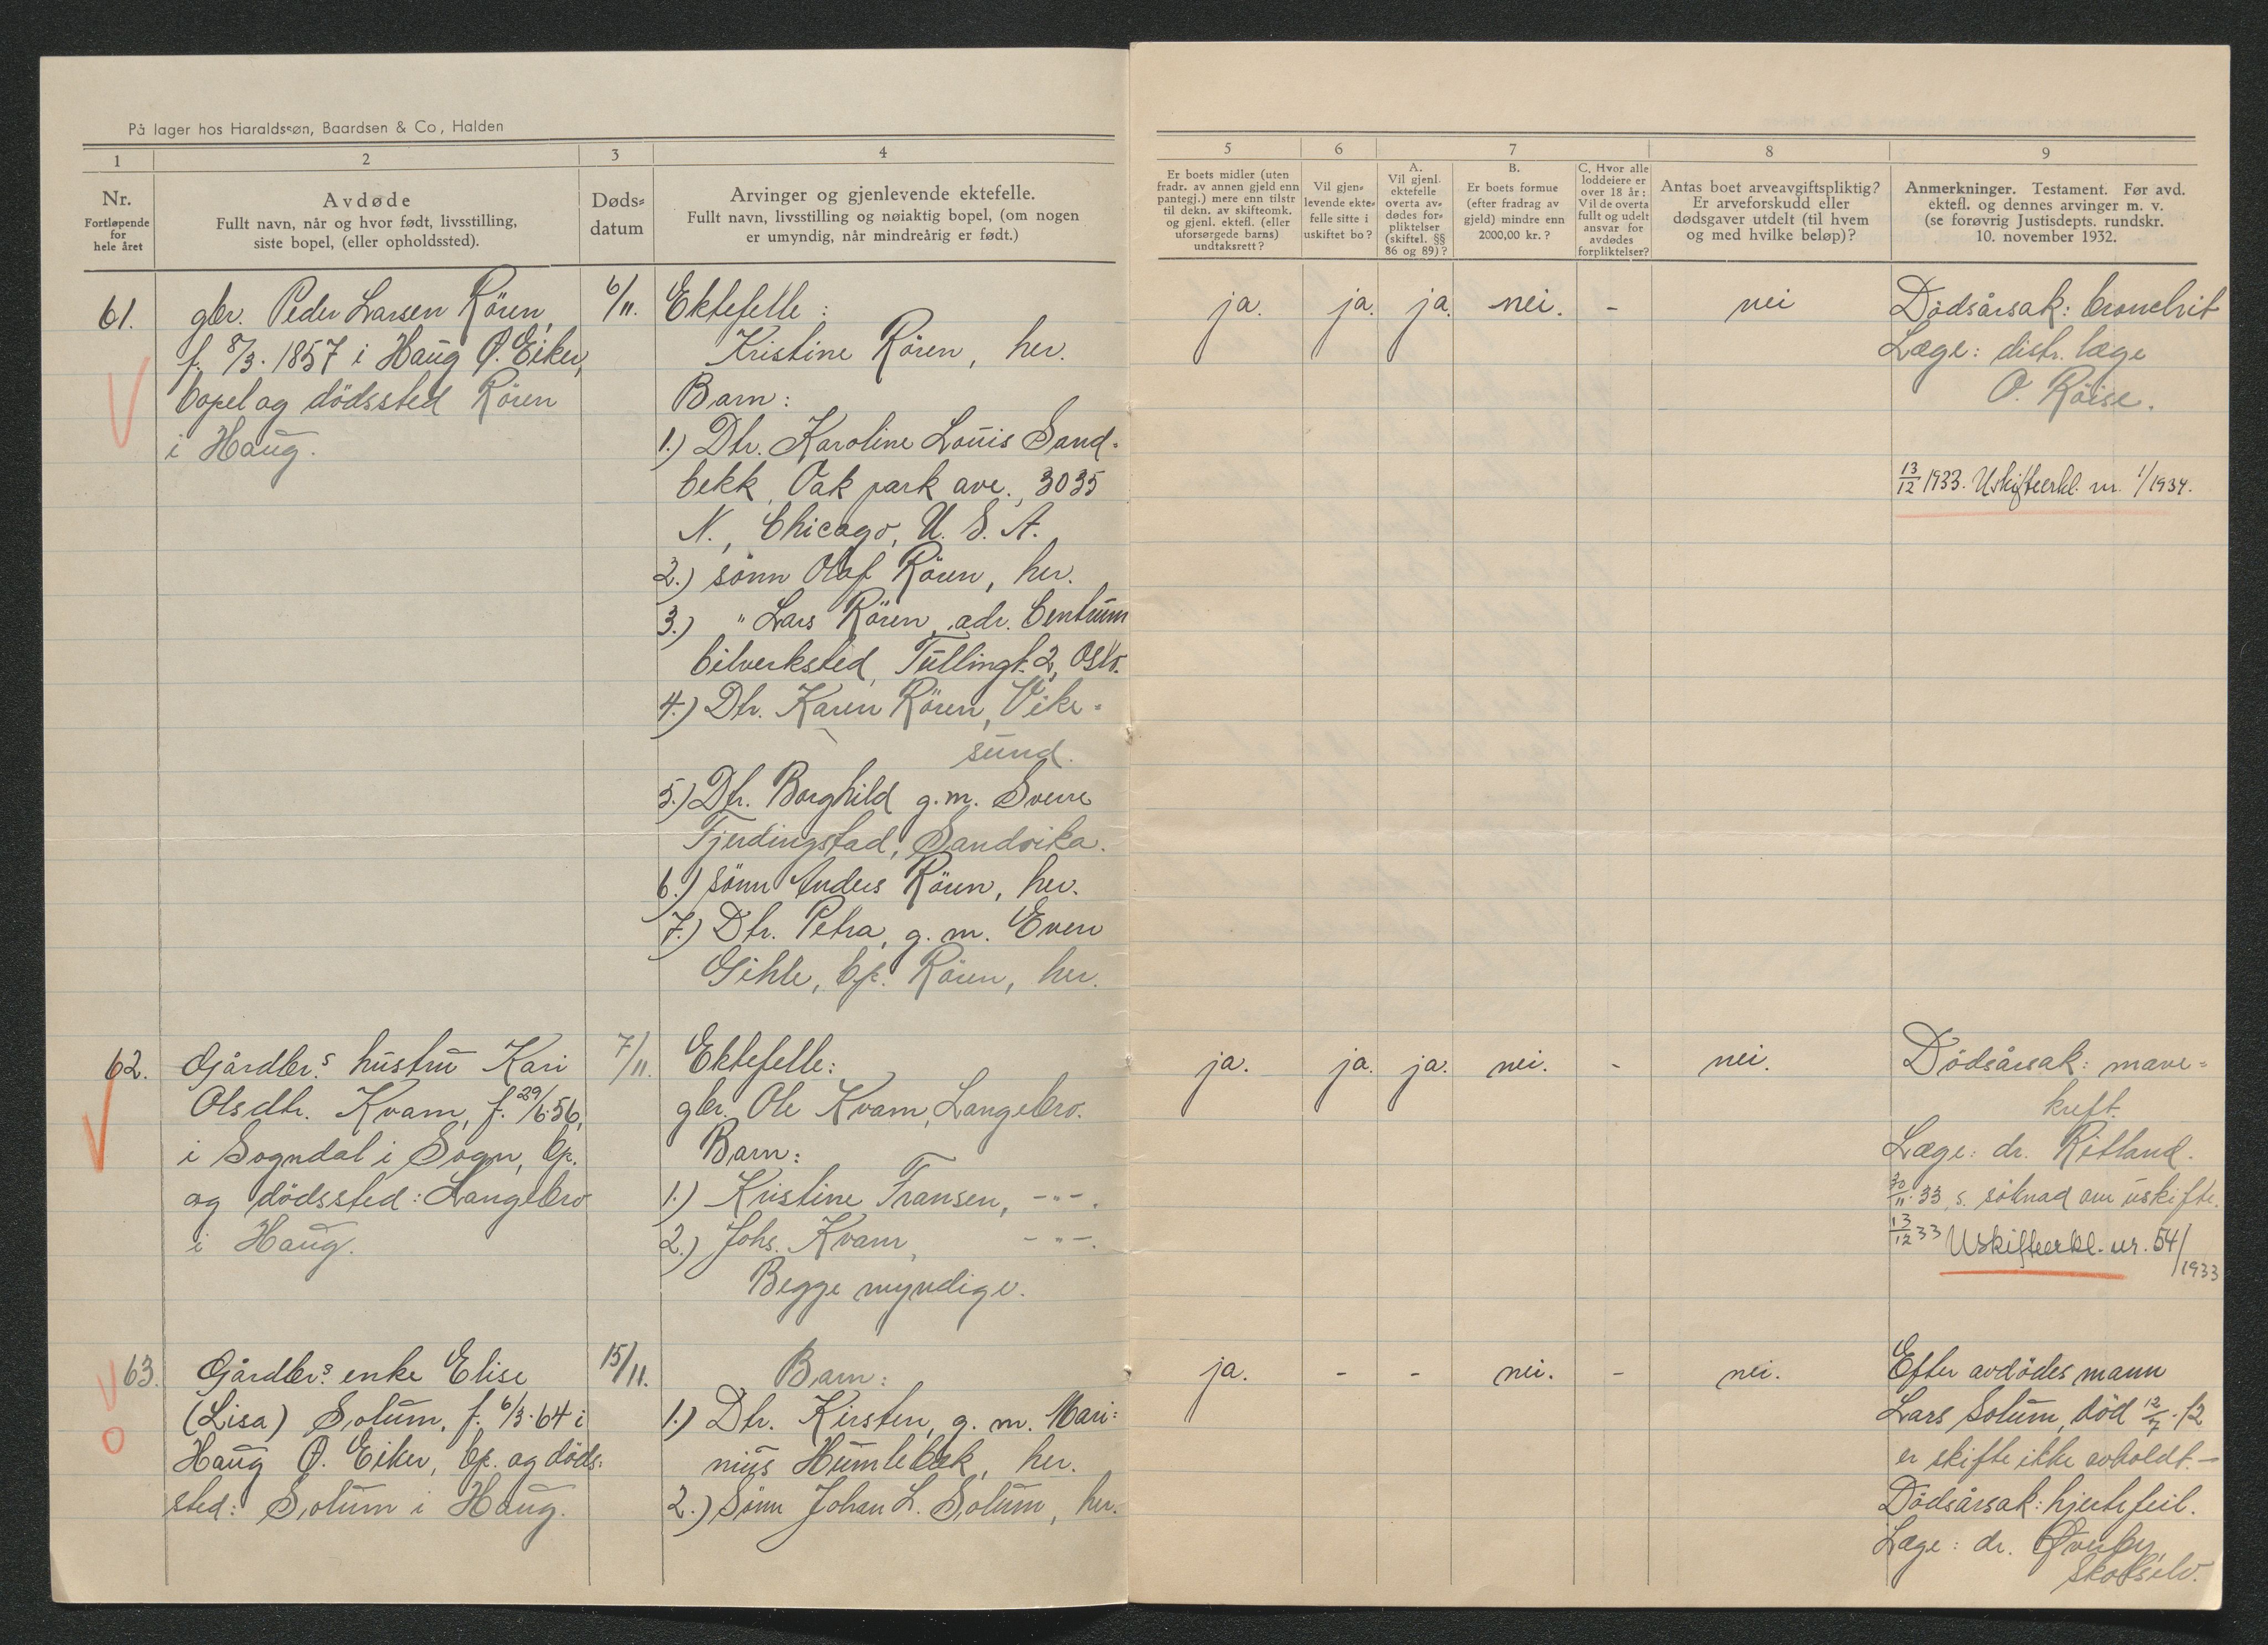 På lager hos Haraldssøn, Baardsen & Co, Halden
1
2
3
4
Nr.
Fortløpende
for
hele året
Avdøde
Fullt navn, når og hvor født, livsstilling,
siste bopel, (eller opholdssted).
Døds=
datum
Arvinger og gjenlevende ektefelle.
Fullt navn, livsstilling og nøiaktig bopel, (om nogen
er umyndig, når mindreårig er født.)
5
6
7
8
9
Er boets midler (uten
fradr. av annen gjeld enn
pantegj.) mere enn tilstr
til dekn. av skifteomk.
og gjenl. ektefl. (eller
uforsørgede barns)
undtaksrett?
Vil gjen=
levende ekte=
felle sitte i
uskiftet bo?
A.
Vil gjenl.
ektefelle
overta av=
dødes for=
pliktelser
(skiftel. §§
86 og 89)?
B.
Er boets formue
(efter fradrag av
gjeld) mindre enn
2000,00 kr.?
C. Hvor alle
loddeiere er
over 18 år:
Vil de overta
fullt og udelt
ansvar for
avdødes
forpliktelser?
Antas boet arveavgiftspliktig?
Er arveforskudd eller
dødsgaver utdelt (til hvem
og med hvilke beløp)?
Anmerkninger. Testament. Før avd.
ektefl. og dennes arvinger m. v.
(se forøvrig Justisdepts. rundskr.
10. november 1932.
61.
gbr. Peder Larsen Rören,
f. 8/3. 1857 i Haug Ö. Eiker,
bopel og dödssted Rören
i Haug.
6/11.
Ektefelle:
Kristine Rören, her.
Barn:
1.) Dtr. Karoline Louis Sand-
bekk, Oak park ave., 3035
N., Chicago, U. S. A.
2.) sönn Olaf Rören, her.
3.) " Lars Rören, adr. Centrum
bilverksted, Tullingt. 2, Oslo.
4.) Dtr. Karen Rören, Vike-
sund.
5.) Dtr. Borghild g.m. Sverre
Fjerdingstad, Sandvika.
6.) sönn Anders Rören, her.
7.) Dtr. Petra, g. m. Even
Gihle, bp. Rören, her.
ja. ja. ja. nei. - nei
Dödsårsak: bronchit
Læge: distr. læge
O. Röise.
13/12 1933. Uskifteerkl. nr. 1/1934.
62.
Gårdbr.s hustru Kari
Olsdtr. Kvam, f. 29/6.56,
i Sogndal i Sogn, bp.
og dödssted: Langebro
i Haug.
7/11.
Ektefelle:
gbr. Ole Kvam, Langebro.
Barn:
1.) Kristine Fransen, -"-.
2.) Johs. Kvam, -"-.
Begge myndige.
ja. ja. ja. nei. - nei.
Dödsårsak: mave=
kreft.
Læge: dr. Ritland.
30/11. 33, s. söknad om uskifte.
13/12 33 Uskifteerkl. nr. 54/1933
63.
Gårdbr.s enke Elise
(Lisa) Solum, f. 6/3.64 i
Haug Ö. Eiker, bp. og döds=
sted: Solum i Haug.
15/11.
Barn:
1.) Dtr. Kirsten, g. m. Mari=
nius Humlebæk, her.
2.) Sönn Johan L. Solum, her.
ja. - - nei. - nei.
Efter avdödes mann
Lars Solum, död 12/7.12
er skifte ikke avholdt.-
Dödsårsak: hjertefeil.
Læge: dr. Øverby,
Skotselv.